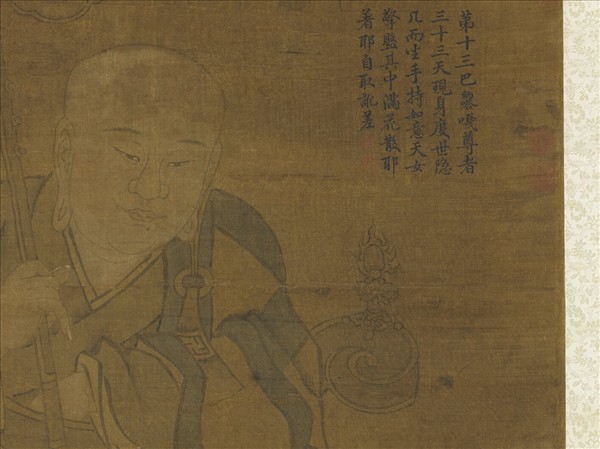 第十三巴黎嘎尊者
三十三天現身度世隱
几而坐手持如意天女
擎盤其中滿花散耶
著耶自取訛差